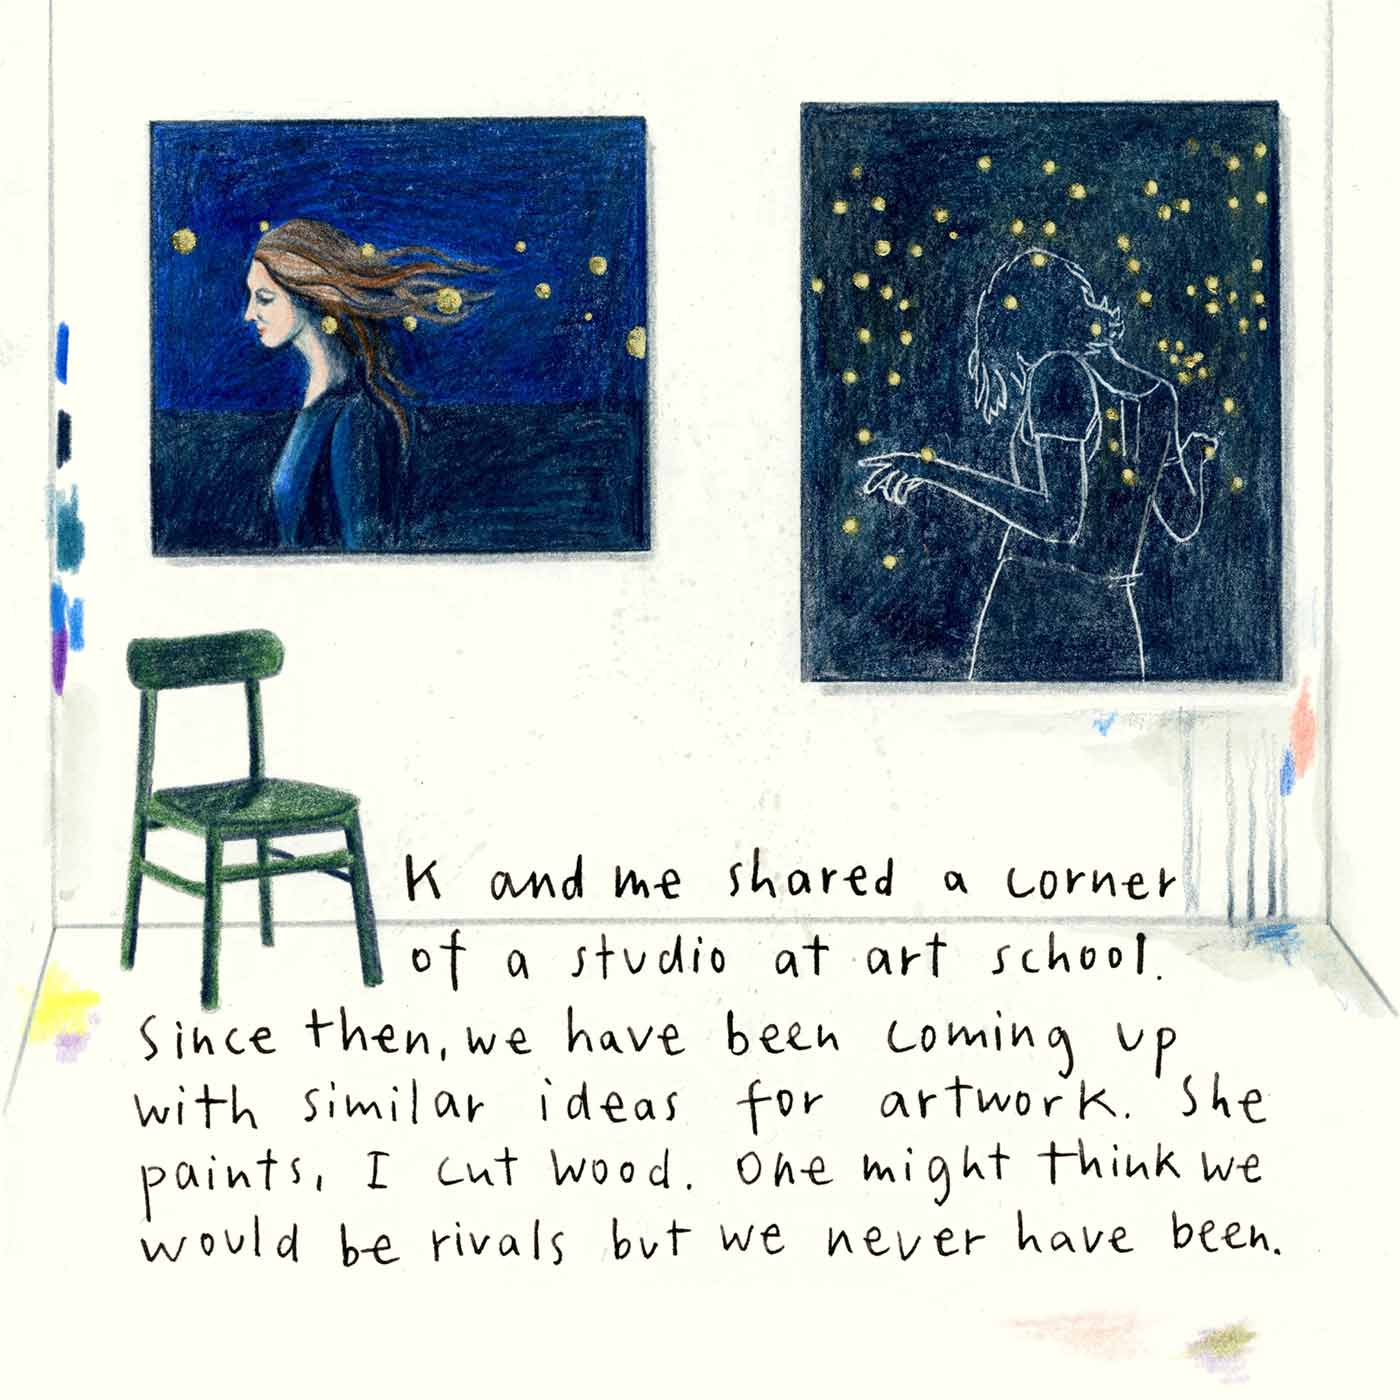 K and me shared a corner
of a studio at art school.
Since then, we have been coming up
with similar ideas for artwork. She
paints, I cut wood. One might think we
would be rivals but we never have been.